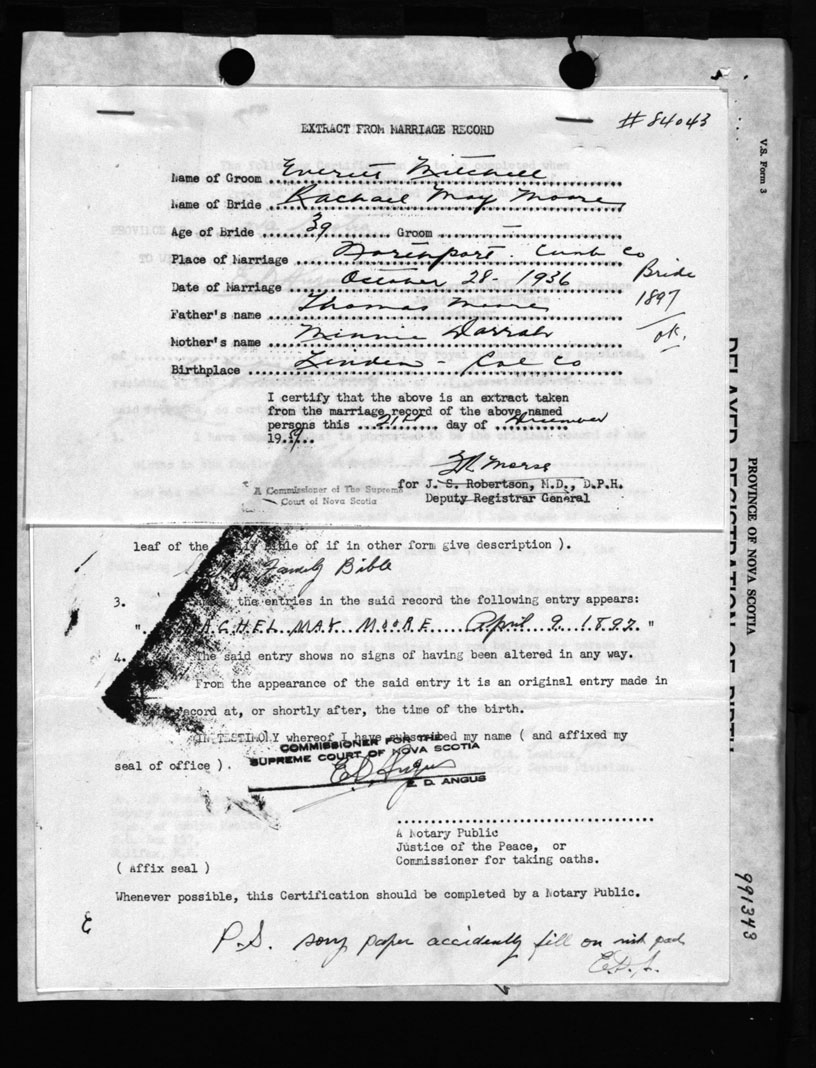 EXTRACT FROM MARRIAGE RECORD
#84043
Name of Groom Everett Mitchell
Name of Bride Rachael May Moore
Age of Bride 39 Groom —
Place of Marriage Cumb Co
Date of Marriage October 28 - 1936
Father's name Thomas Moore
Mother's name Minnie Darrah
Birthplace Linden - Co
Bride
1897
ok.
I certify that the above is an extract taken
from the marriage record of the above named
persons this 21st day of December
19
for J. S. Robertson, M.D., D.P.H.
Deputy Registrar General
A Commissioner of The Supreme
Court of Nova Scotia
leaf of the Bible of if in other form give description ).
Family Bible
3. the entries in the said record the following entry appears:
" ACHEL MAY MOORE April 9 1897 "
4. The said entry shows no signs of having been altered in any way.
From the appearance of the said entry it is an original entry made in
record at, or shortly after, the time of the birth.
IN TESTIMONY whereof I have subscribed my name ( and affixed my
seal of office ).
COMMISSIONER FOR THE
SUPREME COURT OF NOVA SCOTIA
E D Angus
E. D. ANGUS
A Notary Public
Justice of the Peace, or
Commissioner for taking oaths.
( Affix seal )
Whenever possible, this Certification should be completed by a Notary Public.
P.S. sorry paper accidently fell on ink pad
E.D.A.
V.S. Form 3
PROVINCE OF NOVA SCOTIA
DELAYED REGISTRATION OF BIRTH
991343